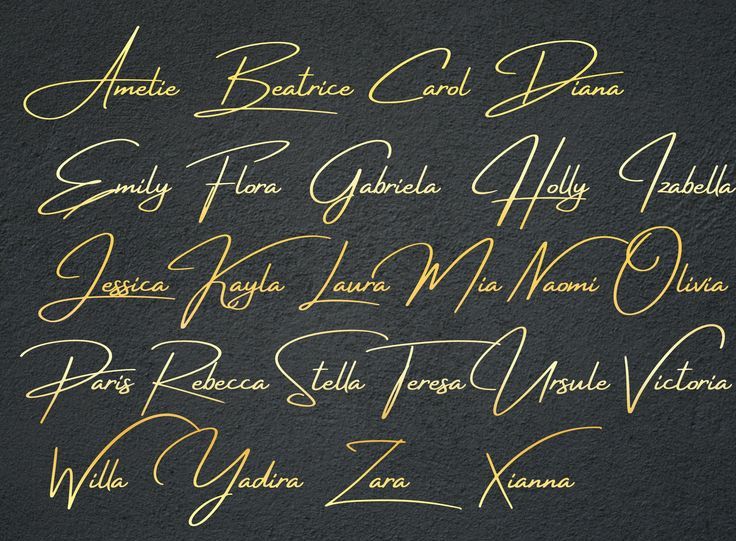 Amelie Beatrice Carol Diana
Emily Flora Gabriela Holly Izabella
Jessica Kayla Laura Mia Naomi Olivia
Paris Rebecca Stella Teresa Ursule Victoria
Willa Yadira Zara Xianna